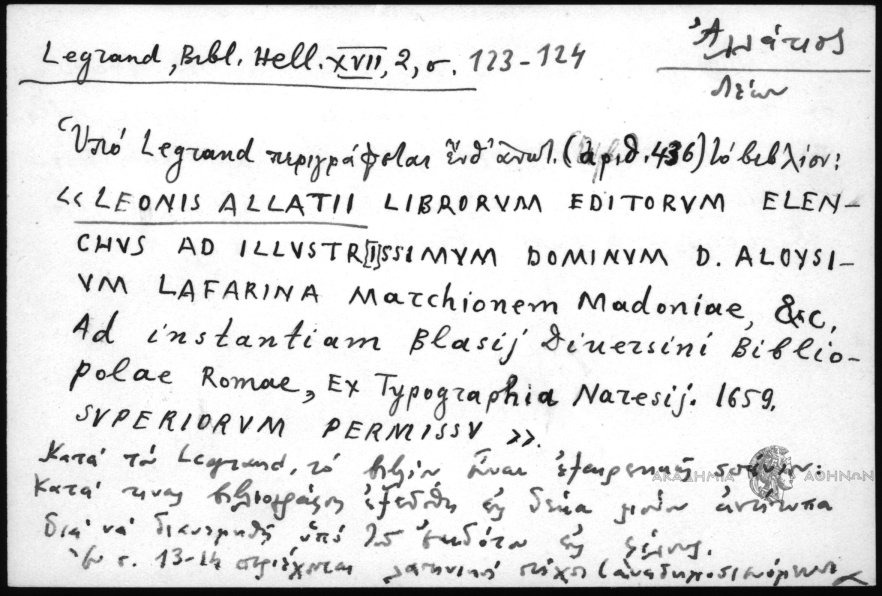 Legrand, Bibl. Hell. XVII, 2, σ. 123-124
Ἀλλάτιος
Λέων
Ὑπό Legrand περιγράφεται ἐνθ' ἀνωτ. (ἀριθ. 436) τό βιβλίον:
«LEONIS ALLATII LIBRORVM EDITORVM ELEN-
CHVS AD ILLVSTR[I]SSIMVM DOMINVM D. ALOYSI-
VM LAFARINA Marchionem Madoniae, &c.
Ad instantiam Blasij Diuersini Biblio-
polae Romae, Ex Typographia Naresij. 1659.
SVPERIORVM PERMISSV».
Κατά τόν Legrand, τό βιβλίον εἶναι ἐξαιρετικῶς σπάνιον:
Κατά τινας βιβλιογράφους ἐξεδόθη εἰς δέκα μόνον ἀντίτυπα
διά νά διανεμηθῇ ὑπό τοῦ ἐκδότου εἰς φίλους.
Ἐν σ. 13-14 περιέχονται λατινικοί στίχοι (ἀναδημοσιευόμενοι
ΑΚΑΔΗΜΙΑ ΑΘΗΝΩΝ